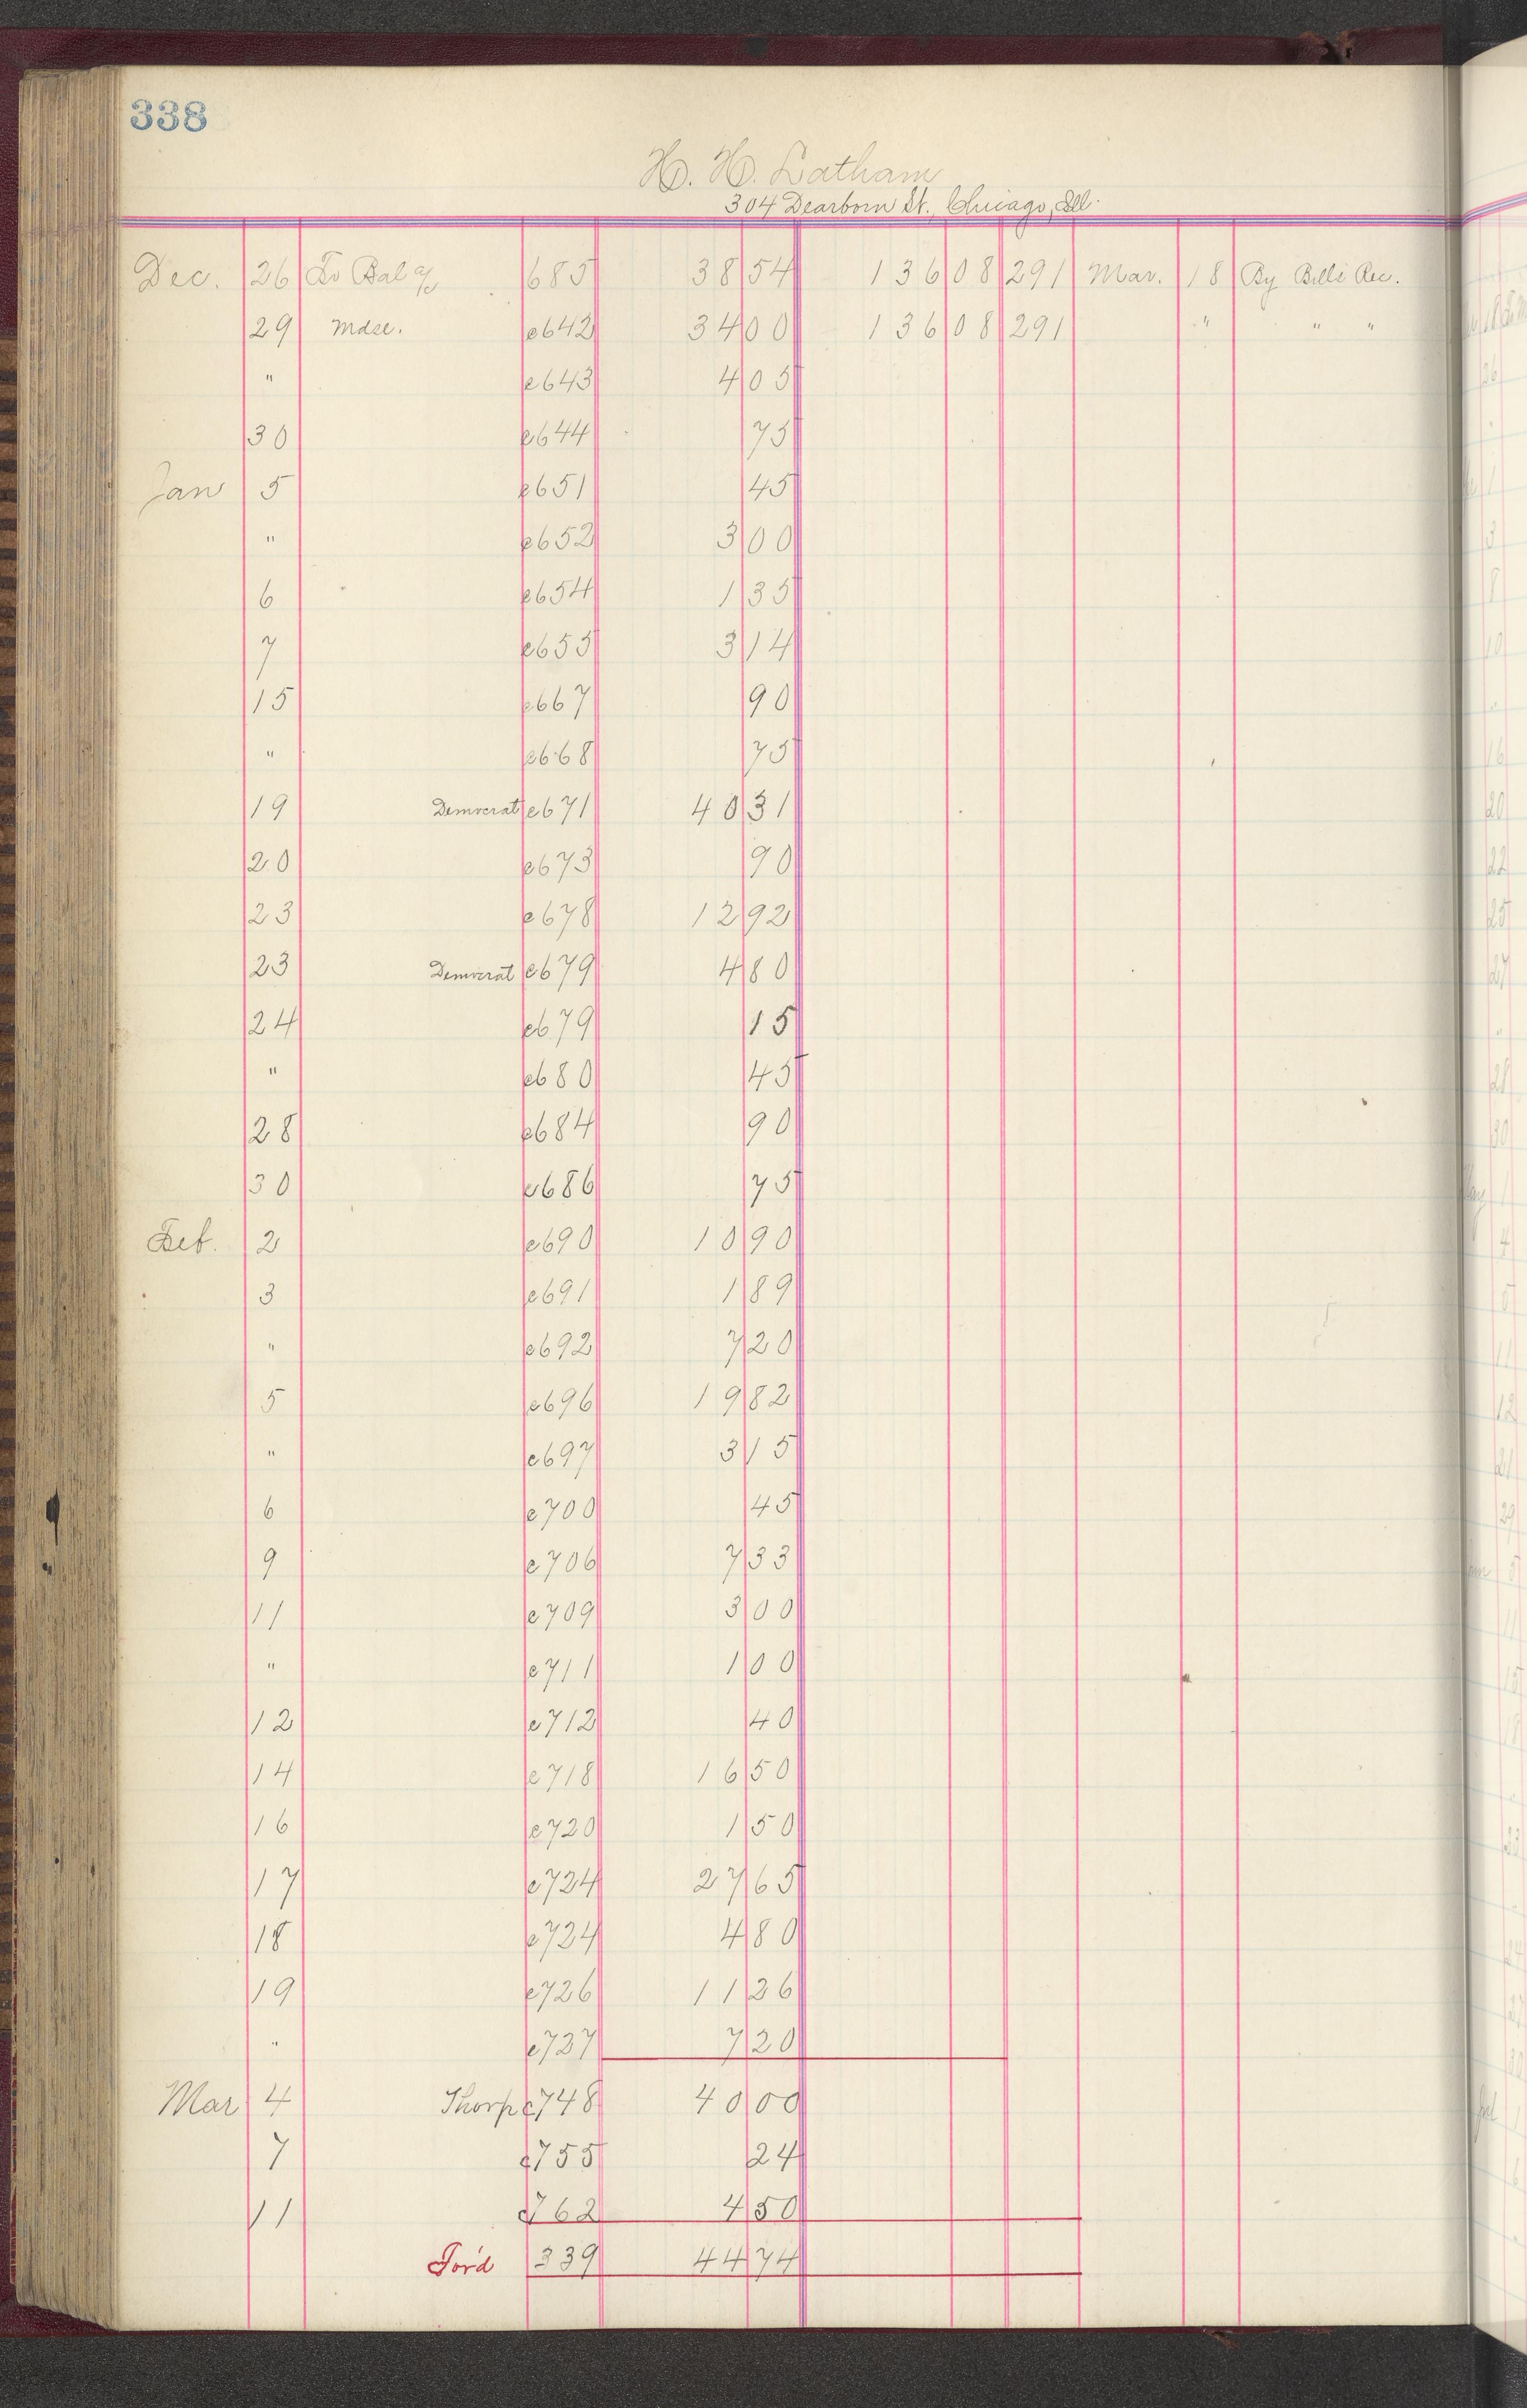 338
H. H. Latham
304 Dearborn St., Chicago, Ill.
Dec. 26 To Bal a/c 685 38 54 136 08 291 Mar. 18 By Bills Rec.
29 Mdse. c642 34 00 136 08 291 " " "
" c643 4 05
30 c644 75
Jan 5 c651 45
" c652 3 00
6 c654 1 35
7 c655 3 14
15 c667 90
" c668 75
19 Democrat c671 40 31
20 c673 90
23 c678 12 92
23 Democrat c679 4 80
24 c679 15
" c680 45
28 c684 90
30 c686 75
Feb. 2 c690 10 90
3 c691 1 89
" c692 7 20
5 c696 19 82
" c697 3 15
6 c700 45
9 c706 7 33
11 c709 3 00
" c711 1 00
12 c712 40
14 c718 16 50
16 c720 1 50
17 c724 27 65
18 c724 4 80
19 c726 11 26
" c727 7 20
Mar 4 Thorp c748 40 00
7 c755 24
11 c762 4 50
For'd 339 44 74